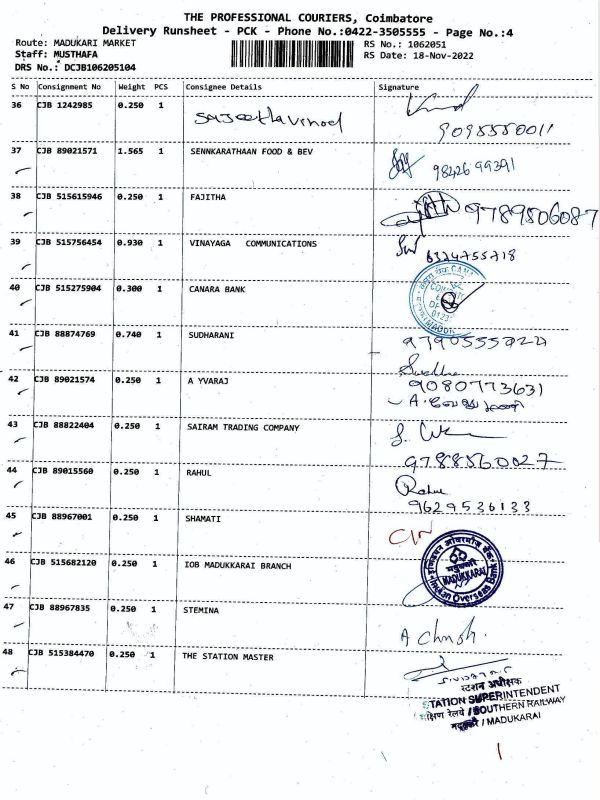 THE PROFESSIONAL COURIERS, Coimbatore
Delivery Runsheet - PCK - Phone No.:0422-3505555 - Page No.:4
Route: MADUKARI MARKET
RS No.: 1062051
Staff: MUSTHAFA
RS Date: 18-Nov-2022
DRS No.: DCJB106205104
S No Consignment No Weight PCS Consignee Details Signature
36 CJB 1242985 0.250 1 Sajeetha Vinod
9095550011
37 CJB 89021571 1.565 1 SENNKARATHAAN FOOD & BEV
9842699391
38 CJB 515615946 0.250 1 FAJITHA
9789506087
39 CJB 515756454 0.930 1 VINAYAGA COMMUNICATIONS
6374755718
40 CJB 515275904 0.300 1 CANARA BANK
41 CJB 88874769 0.740 1 SUDHARANI
42 CJB 89021574 0.250 1 A YVARAJ
9080773631
43 CJB 88822404 0.250 1 SAIRAM TRADING COMPANY
9788560027
44 CJB 89015560 0.250 1 RAHUL
Rahul
9629536133
45 CJB 88967001 0.250 1 SHAMATI
46 CJB 515682120 0.250 1 IOB MADUKKARAI BRANCH
इण्डियन ओवरसीज बैंक
मदुक्करै
MADUKKARAI
Indian Overseas Bank
47 CJB 88967835 0.250 1 STEMINA
48 CJB 515384470 0.250 1 THE STATION MASTER
स्टेशन अधीक्षक
STATION SUPERINTENDENT
दक्षिण रेलवे / SOUTHERN RAILWAY
मदुक्करै / MADUKARAI